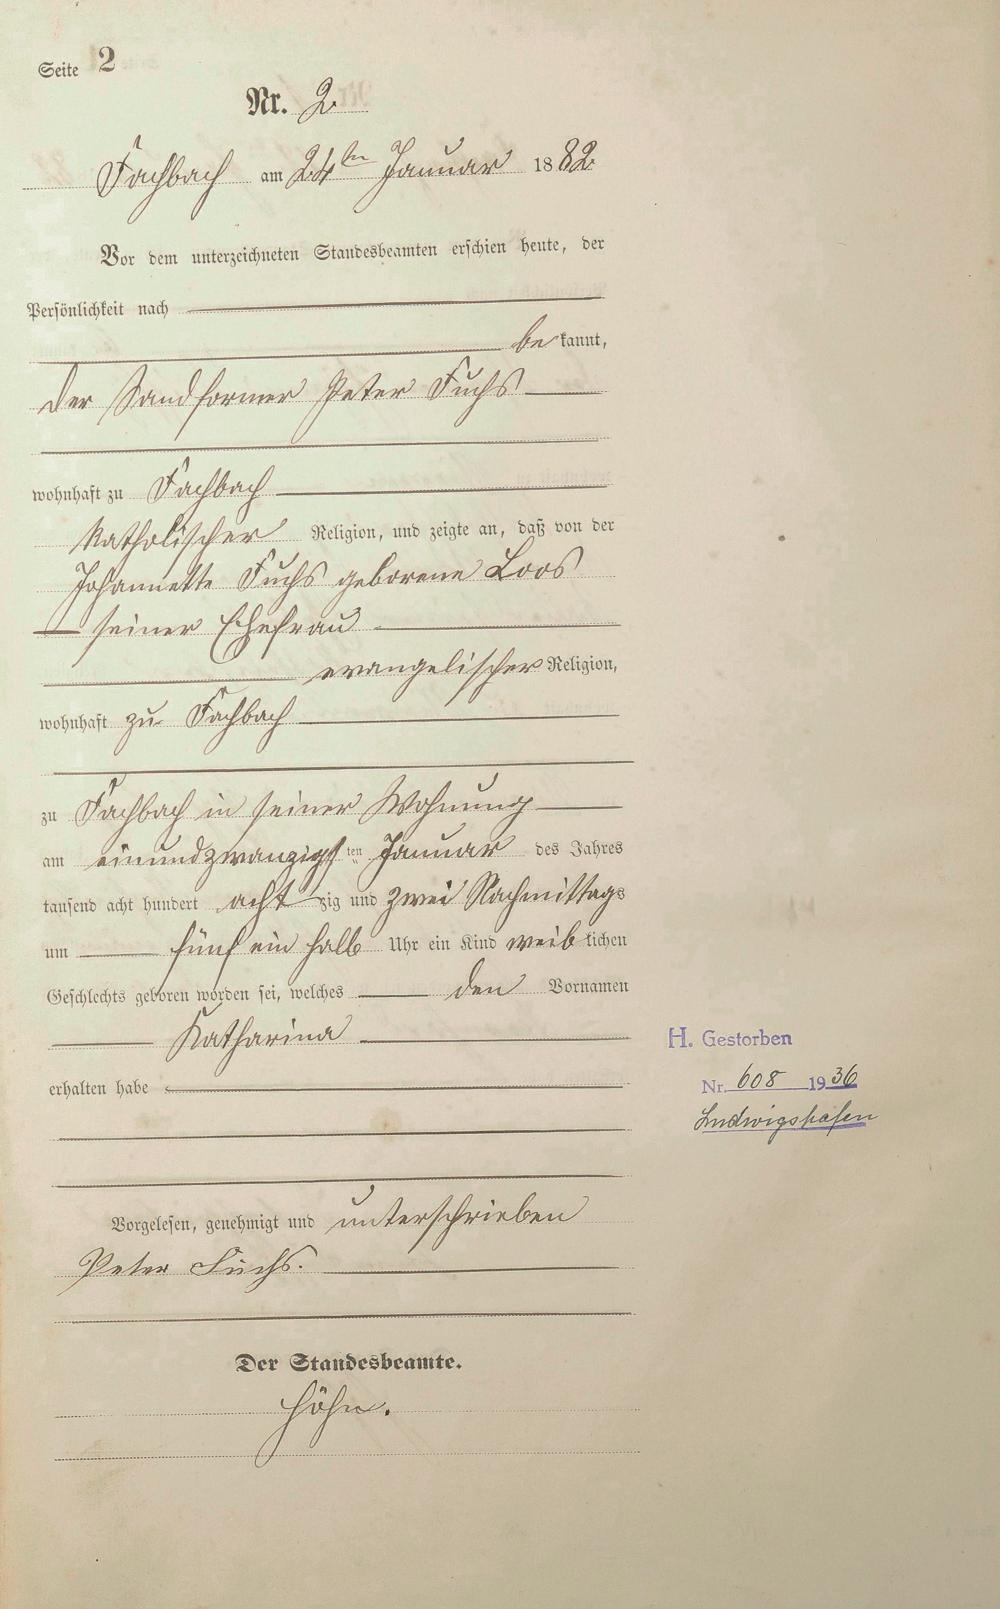 Seite 2
Nr. 2.
Fachbach am 24ten Januar 1882.
Vor dem unterzeichneten Standesbeamten erschien heute, der
Persönlichkeit nach
bekannt,
der Sandformer Peter Fuchs
wohnhaft zu Fachbach
katholischer Religion, und zeigte an, daß von der
Johannette Fuchs geborene Loos
seiner Ehefrau
evangelischer Religion,
wohnhaft zu Fachbach
zu Fachbach in seiner Wohnung
am einundzwanzigsten Januar des Jahres
tausend acht hundert achtzig und zwei Nachmittags
um fünf ein halb Uhr ein Kind weiblichen
Geschlechts geboren worden sei, welches den Vornamen
Katharina
erhalten habe
Vorgelesen, genehmigt und unterschrieben
Peter Fuchs.
Der Standesbeamte.
Höhn.
H. Gestorben
Nr. 608 1936
Ludwigshafen